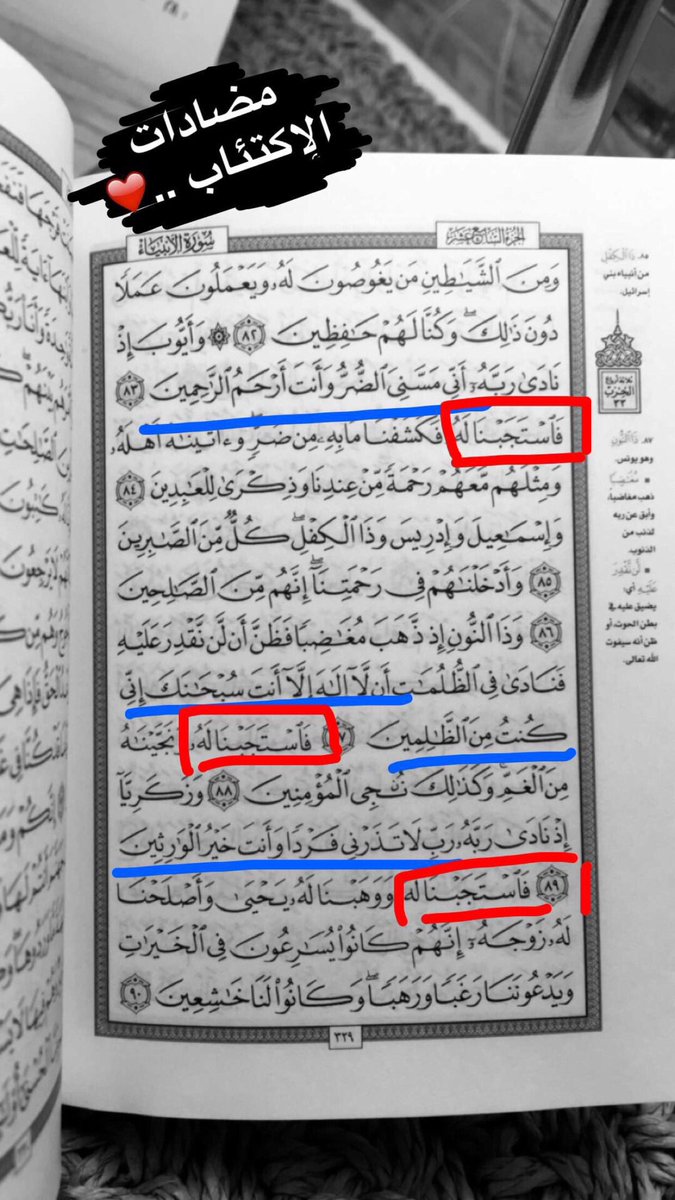 مضادات
الإكتئاب .. ❤
الجزء السابع عشر
سورة الأنبياء
وَمِنَ ٱلشَّيَٰطِينِ مَن يَغُوصُونَ لَهُۥ وَيَعْمَلُونَ عَمَلًا
دُونَ ذَٰلِكَ ۖ وَكُنَّا لَهُمْ حَٰفِظِينَ ٨٢ ۞ وَأَيُّوبَ إِذْ
نَادَىٰ رَبَّهُۥٓ أَنِّى مَسَّنِىَ ٱلضُّرُّ وَأَنتَ أَرْحَمُ ٱلرَّٰحِمِينَ ٨٣
فَٱسْتَجَبْنَا لَهُۥ فَكَشَفْنَا مَا بِهِۦ مِن ضُرٍّ ۖ وَءَاتَيْنَٰهُ أَهْلَهُۥ
وَمِثْلَهُم مَّعَهُمْ رَحْمَةً مِّنْ عِندِنَا وَذِكْرَىٰ لِلْعَٰبِدِينَ ٨٤
وَإِسْمَٰعِيلَ وَإِدْرِيسَ وَذَا ٱلْكِفْلِ ۖ كُلٌّ مِّنَ ٱلصَّٰبِرِينَ
٨٥ وَأَدْخَلْنَٰهُمْ فِى رَحْمَتِنَآ ۖ إِنَّهُم مِّنَ ٱلصَّٰلِحِينَ
٨٦ وَذَا ٱلنُّونِ إِذ ذَّهَبَ مُغَٰضِبًا فَظَنَّ أَن لَّن نَّقْدِرَ عَلَيْهِ
فَنَادَىٰ فِى ٱلظُّلُمَٰتِ أَن لَّآ إِلَٰهَ إِلَّآ أَنتَ سُبْحَٰنَكَ إِنِّى
كُنتُ مِنَ ٱلظَّٰلِمِينَ ٨٧ فَٱسْتَجَبْنَا لَهُۥ وَنَجَّيْنَٰهُ
مِنَ ٱلْغَمِّ ۚ وَكَذَٰلِكَ نُۨجِى ٱلْمُؤْمِنِينَ ٨٨ وَزَكَرِيَّآ
إِذْ نَادَىٰ رَبَّهُۥ رَبِّ لَا تَذَرْنِى فَرْدًا وَأَنتَ خَيْرُ ٱلْوَٰرِثِينَ
٨٩ فَٱسْتَجَبْنَا لَهُۥ وَوَهَبْنَا لَهُۥ يَحْيَىٰ وَأَصْلَحْنَا
لَهُۥ زَوْجَهُۥٓ ۚ إِنَّهُمْ كَانُوا۟ يُسَٰرِعُونَ فِى ٱلْخَيْرَٰتِ
وَيَدْعُونَنَا رَغَبًا وَرَهَبًا ۖ وَكَانُوا۟ لَنَا خَٰشِعِينَ ٩٠
٣٢٩
٨٥ ذَا الْكِفْلِ
من أنبياء بني
إسرائيل.
الحزب
٣٣
٨٧ ذَا النُّونِ
وهو يونس.
■ مُغَاضِبًا
ذهب مغاضبا،
وأبق عن ربه
لذنب من
الذنوب.
■ لَّن نَّقْدِرَ
عَلَيْهِ أي:
يضيق عليه في
بطن الحوت، أو
ظن أنه سيفوت
الله تعالى.